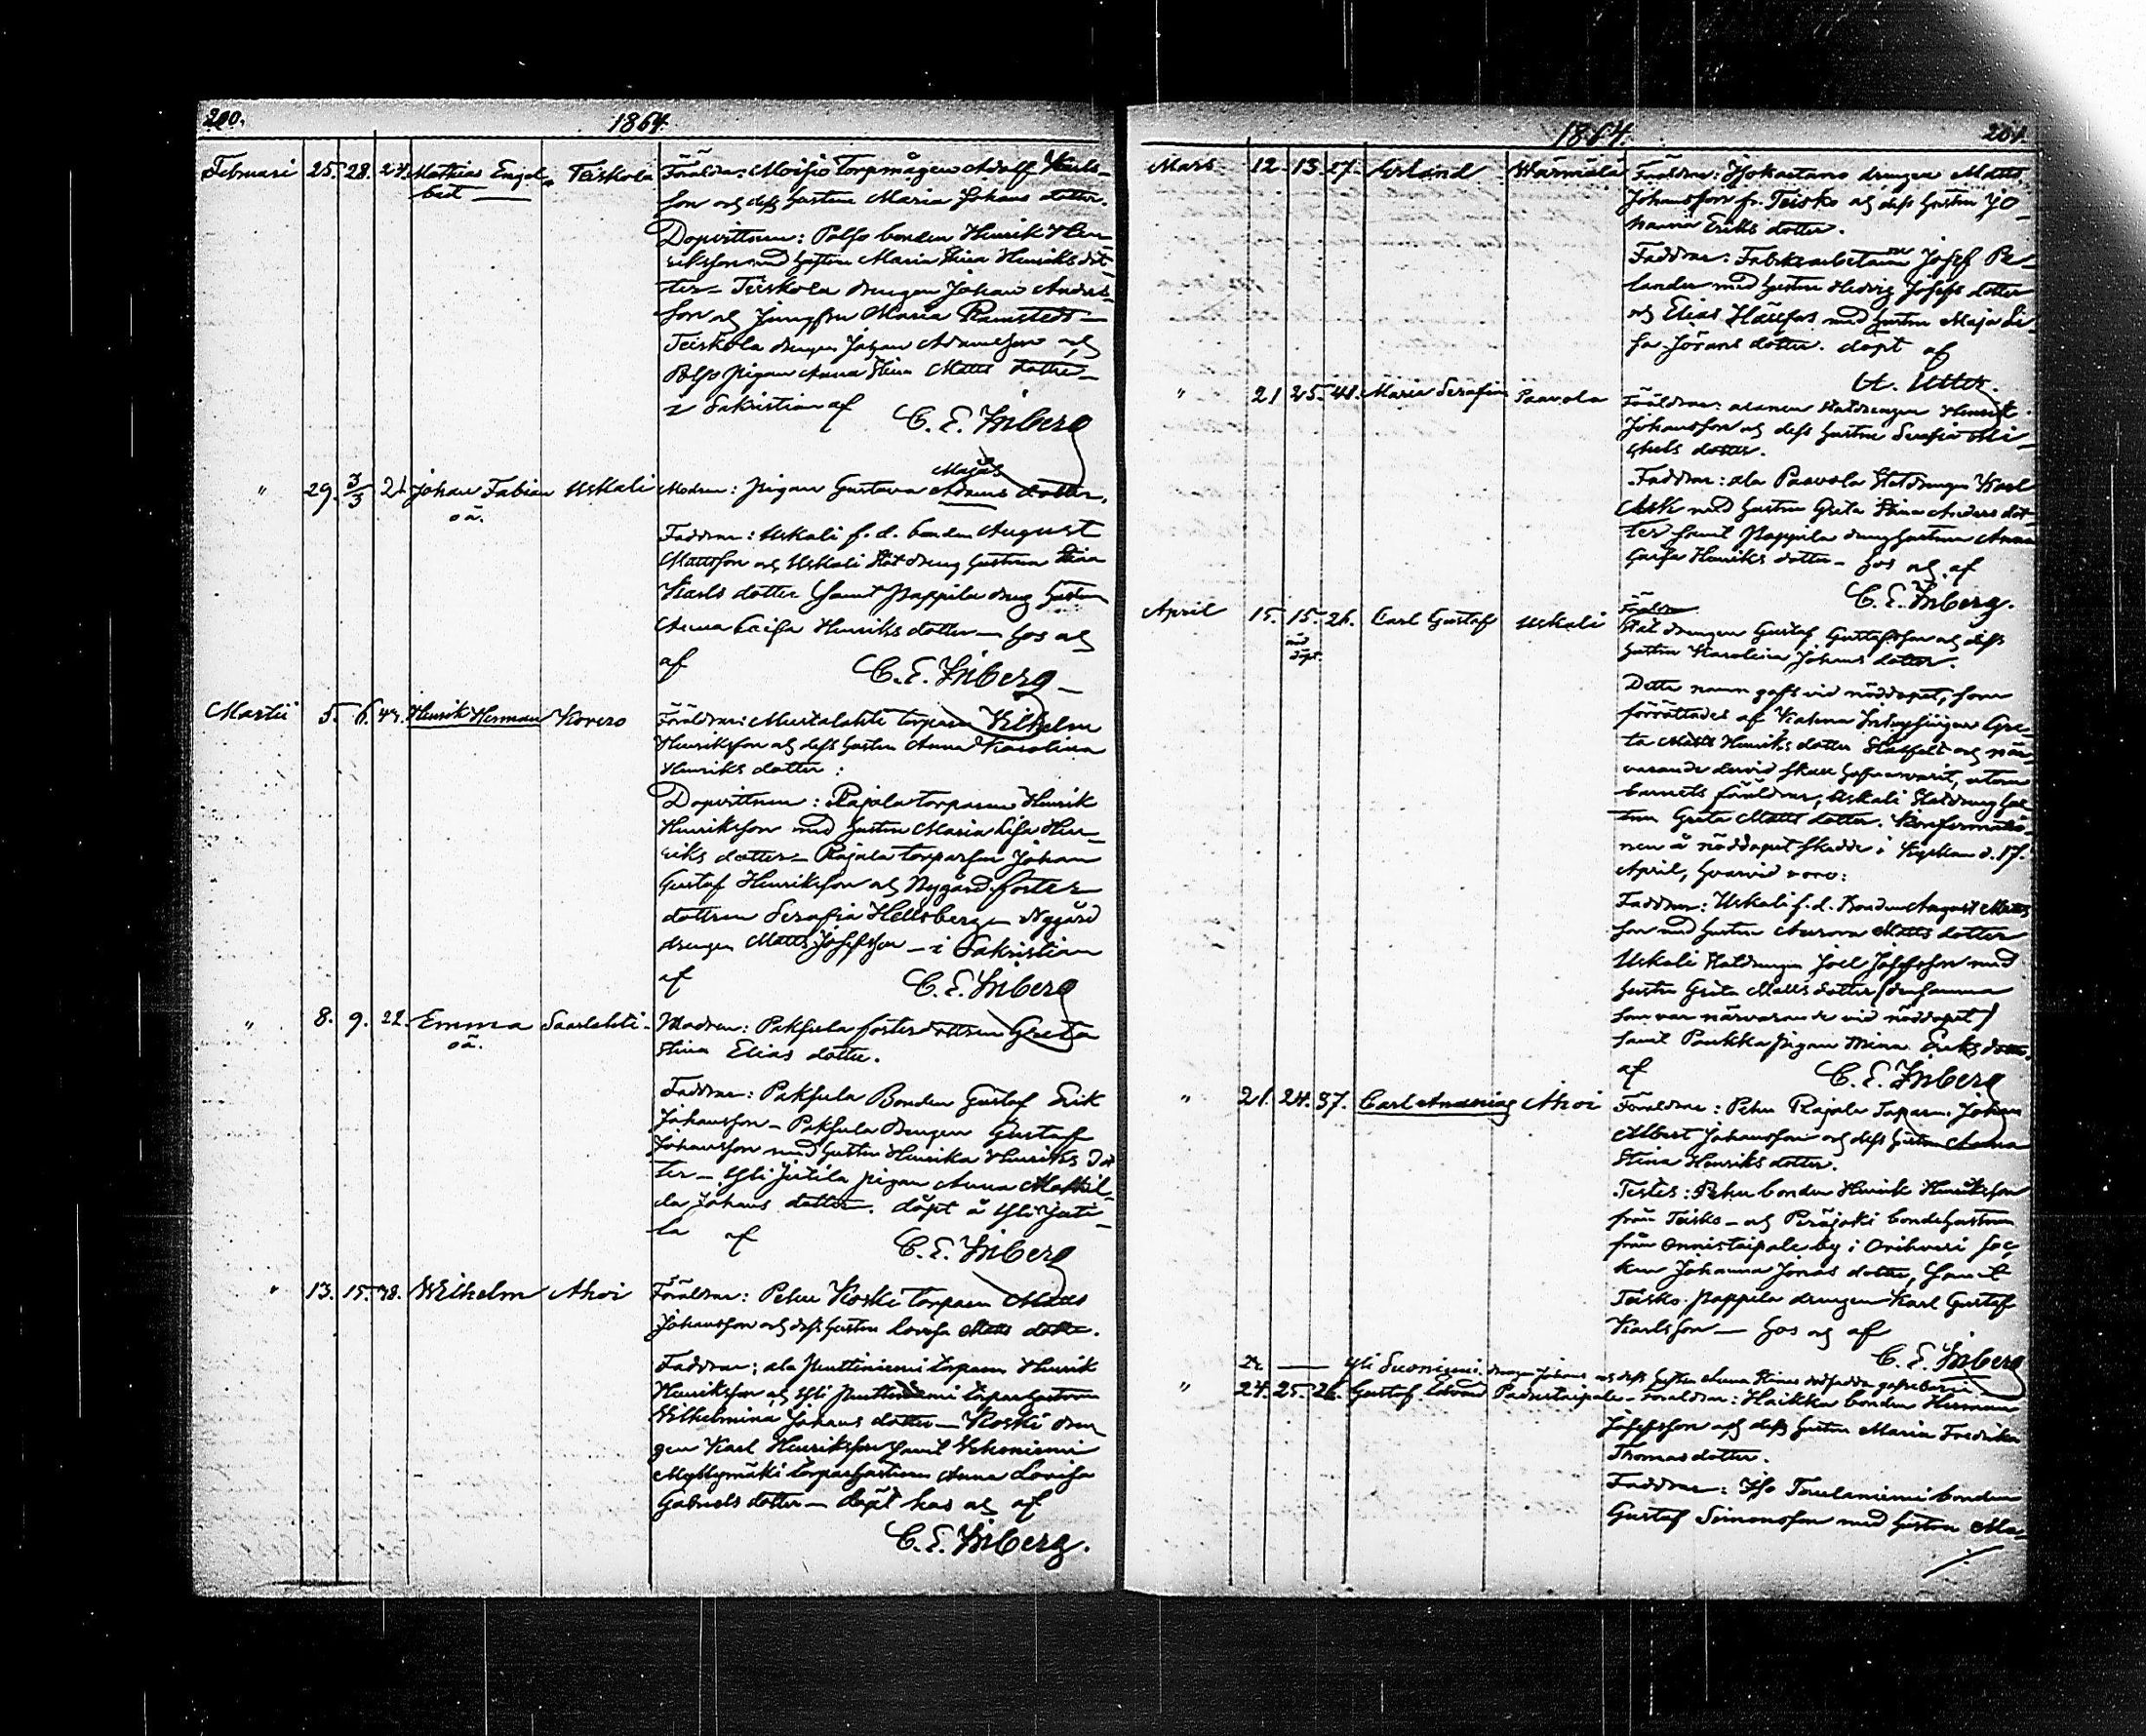 200. 1864.
Februari 25. 28. 24. Mathias Engel- Teiskola Föräldrar: Moisio Torpmågen Adolf Karls-
bert son och dess hustru Maria Johans dotter.
Dopvittnen: Polso bonden Henrik Hen-
riksson med hustru Maria Stina Henriks dot-
ter – Teiskola drengen Johan Anders-
son och Jungfru Maria Ramstedt –
Teiskola drengen Johan Adamsson och
Polso pigan Anna Stina Matts dotter –
i Sakristian af C. E. Inberg
Majas
" 29. 3/3 21. Johan Fabian Uskali Modren: Pigan Gustava Adams dotter.
oä.
Faddrar: Uskali f. d. bonden August
Mattsson och Uskali Stat dreng hustrun Stina
Karls dotter samt Pappila dreng hustru
Anna Caisa Henriks dotter – hos och
af C. E. Inberg –
Martii 5. 6. 44. Henrik Herman Korvero Föräldrar: Mustalahti torparen Vilhelm
Henriksson och dess hustru Anna Karolina
Henriks dotter:
Dopvittnen: Rajala torparen Henrik
Henriksson med hustru Maria Lisa Hen-
riks dotter – Rajala torparson Johan
Gustaf Henriksson och Nygård foster
dottren Serafia Hellsberg – Nygård
drengen Matts Josefsson – i Sakristian
af C. E. Inberg
" 8. 9. 22. Emma Saarlahti. Modren: Paksula fosterdottren Greta
oä. Stina Elias dotter.
Faddrar: Paksula Bonden Gustaf Erik
Johansson – Paksula Drengen Gustaf
Johansson med hustru Henrika Henriks dot
ter – Yli Jutila pigan Anna Mathil-
da Johans dotter. döpt å Yli Juti-
la af C. E. Inberg
" 13. 15. 38. Wilhelm Ahoi Föräldrar: Pehu Koski torparen Matts
Johansson och dess hustru Lovisa Matts dotter.
Faddrar: ala Puttiniemi torparen Henrik
Henriksson och Yli Puttiniemi torparhustrun
Wilhelmina Johans dotter – Koski dren
gen Karl Henriksson samt Vehoniemi
Myllymäki torparhustrun Anna Lovisa
Gabriels dotter – döpt hos och af
C. E. Inberg.
1864. 201.
Mars 12. 13. 27. Erland Wärmälä Föräldrar: drengen Matts
Johansson fr. Teisko och dess hustru Jo-
hanna Eriks dotter.
Faddrar: Fabriksarbetaren Josef Be-
lander med hustru Hedvig Josefs dotter
och Elias Hällfors med hustru Maja Li-
sa Jörans dotter. döpt af
A. Utter.
" 21 25. 41. Maria Serafia Paavola Föräldrar: Statdrengen Henrik
Johansson och dess hustru Serafia Mi-
chels dotter.
Faddrar: ala Paavola Statdrengen Karl
Ask med hustru Greta Stina Anders dot-
ter samt Pappila drenghustrun Anna
Caisa Henriks dotter – hos och af
C. E. Inberg.
April 15. 15. 26. Carl Gustaf Uskali Föräldrar
nöd Stat drengen Gustaf Gustafsson och dess
döpt. hustru Karolina Johans dotter.
Detta namn gafs vid nöddopet, som
förrättades af Inhysepigan Gre-
ta Matts Henriks dotter Stålfelt och när-
varande dervid skall hafva varit, utom
barnets föräldrar, Uskali Statdreng hus-
trun Greta Matts dotter. Konfirmatio-
nen å nöddopet skedde i Kyrkan d. 17.
April, hvarvid voro:
Faddrar: Uskali f. d. Bonden August Matts
son med hustru Aurora Matts dotter
Uskali Statdrengen Joel Josefsson med
hustru Greta Matts dotter (densamma
som var närvarande vid nöddopet)
samt Paukka pigan Mina Eriks dotter
af C. E. Inberg
" 21. 24. 37. Carl Ananias Ahoi Föräldrar: Pehu Rajala Torparen Johan
Albert Johansson och dess hustru Anna
Stina Henriks dotter.
Testes: Pehu bonden Henrik Henriksson
från Teisko – och Peräjoki bondehustrun
från Onnistaipale by i Orihvesi soc-
ken Johanna Jonas dotter, samt
Teisko Pappila drengen Karl Gustaf
Karlsson – hos och af
C. E. Inberg
22. — Yli Suoniemi drengen Johans och dess hustru Anna Stinas dödfödda gossebarn
" 24. 25. 26. Gustaf Edvard Padustaipale – Föräldrar: Haikka bonden Herman
Josefsson och dess hustru Maria Fredrika
Thomas dotter.
Faddrar: Iso Toulaniemi bonden
Gustaf Simonsson med hustru Ma-